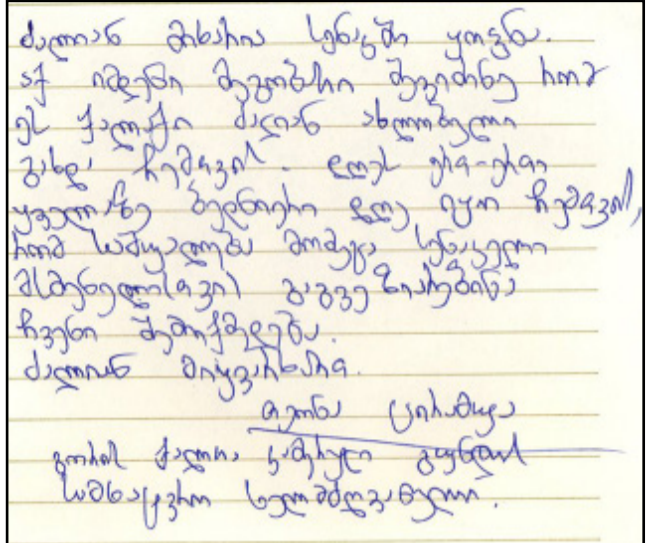 ძალიან მიხარია სენაკში ყოფნა.
აქ იმდენი მეგობარი შევიძინე რომ
ეს ქალაქი ძალიან ახლობელი
გახდა ჩემთვის. დღეს ერთ-ერთი
ყველაზე ბედნიერი დღე იყო ჩემთვის,
რომ საშუალება მომეცა სენაკელი
მსმენელისთვის გაგვეზიარებინა
ჩვენი შემოქმედება.
ძალიან მიყვარხართ.
თეონა ცირამუა
გორის ქალთა კამერული გუნდის
სამხატვრო ხელმძღვანელი.